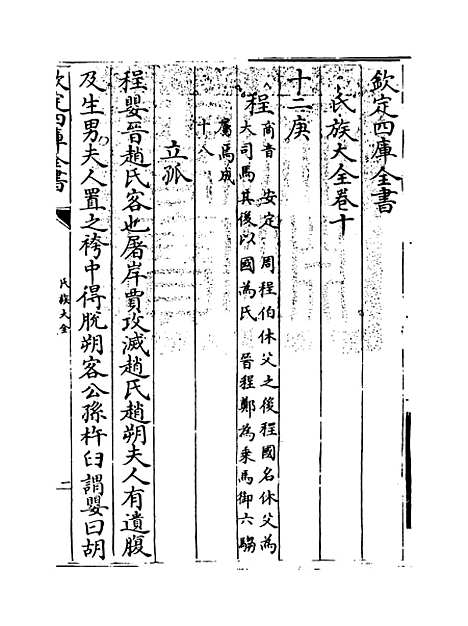 欽定四庫全書
氏族大全卷十
十二庚
程
商音　安定　周程伯休父之後程國名休父為
大司馬其後以國為氏　晉程鄭為乘馬御六騶
屬焉成
十八
立孤
程嬰晉趙氏客也屠岸賈攻滅趙氏趙朔夫人有遺腹
及生男夫人置之袴中得脫朔客公孫杵臼謂嬰曰胡
欽定四庫全書
氏族大全